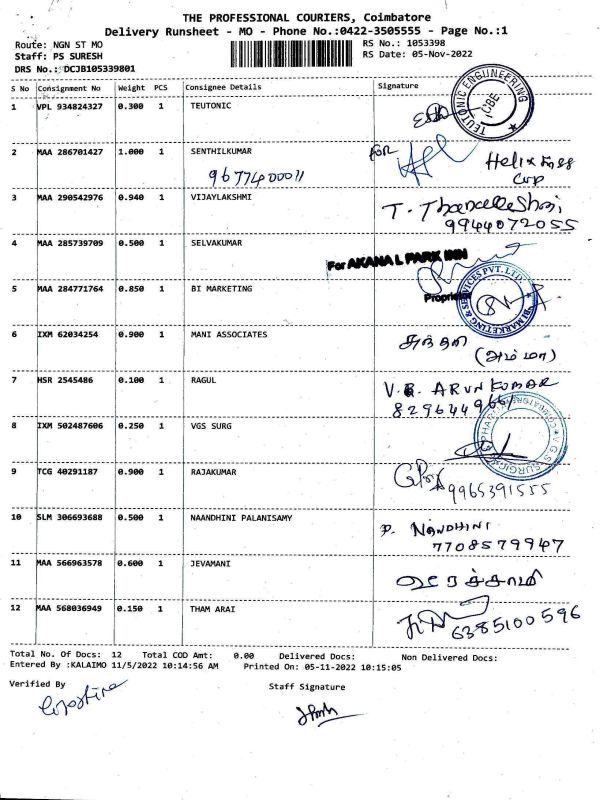 THE PROFESSIONAL COURIERS, Coimbatore
Delivery Runsheet - MO - Phone No.:0422-3505555 - Page No.:1
Route: NGN ST MO
Staff: PS SURESH
DRS No.: DCJB105339801
RS No.: 1053398
RS Date: 05-Nov-2022
S No Consignment No Weight PCS Consignee Details Signature
1 VPL 934824327 0.300 1 TEUTONIC
TEUTONIC ENGINEERING
CBE
2 MAA 286701427 1.000 1 SENTHILKUMAR
9677400011
For
Helix
3 MAA 290542976 0.940 1 VIJAYLAKSHMI
9944072055
4 MAA 285739709 0.500 1 SELVAKUMAR
For AKANA L PARK INN
Proprietor
5 MAA 284771764 0.850 1 BI MARKETING
BI MARKETING & SERVICES PVT. LTD.
6 IXM 62034254 0.900 1 MANI ASSOCIATES
(அம்மா)
7 HSR 2545486 0.100 1 RAGUL
V.R. ARUN KUMAR
8 IXM 502487606 0.250 1 VGS SURG
9 TCG 40291187 0.900 1 RAJAKUMAR
9965391555
10 SLM 306693688 0.500 1 NAANDHINI PALANISAMY
P. NANDHINI
7708579947
11 MAA 566963578 0.600 1 JEVAMANI
12 MAA 568036949 0.150 1 THAM ARAI
6385100596
Total No. Of Docs: 12 Total COD Amt: 0.00 Delivered Docs: Non Delivered Docs:
Entered By :KALAIMO 11/5/2022 10:14:56 AM Printed On: 05-11-2022 10:15:05
Verified By
Staff Signature